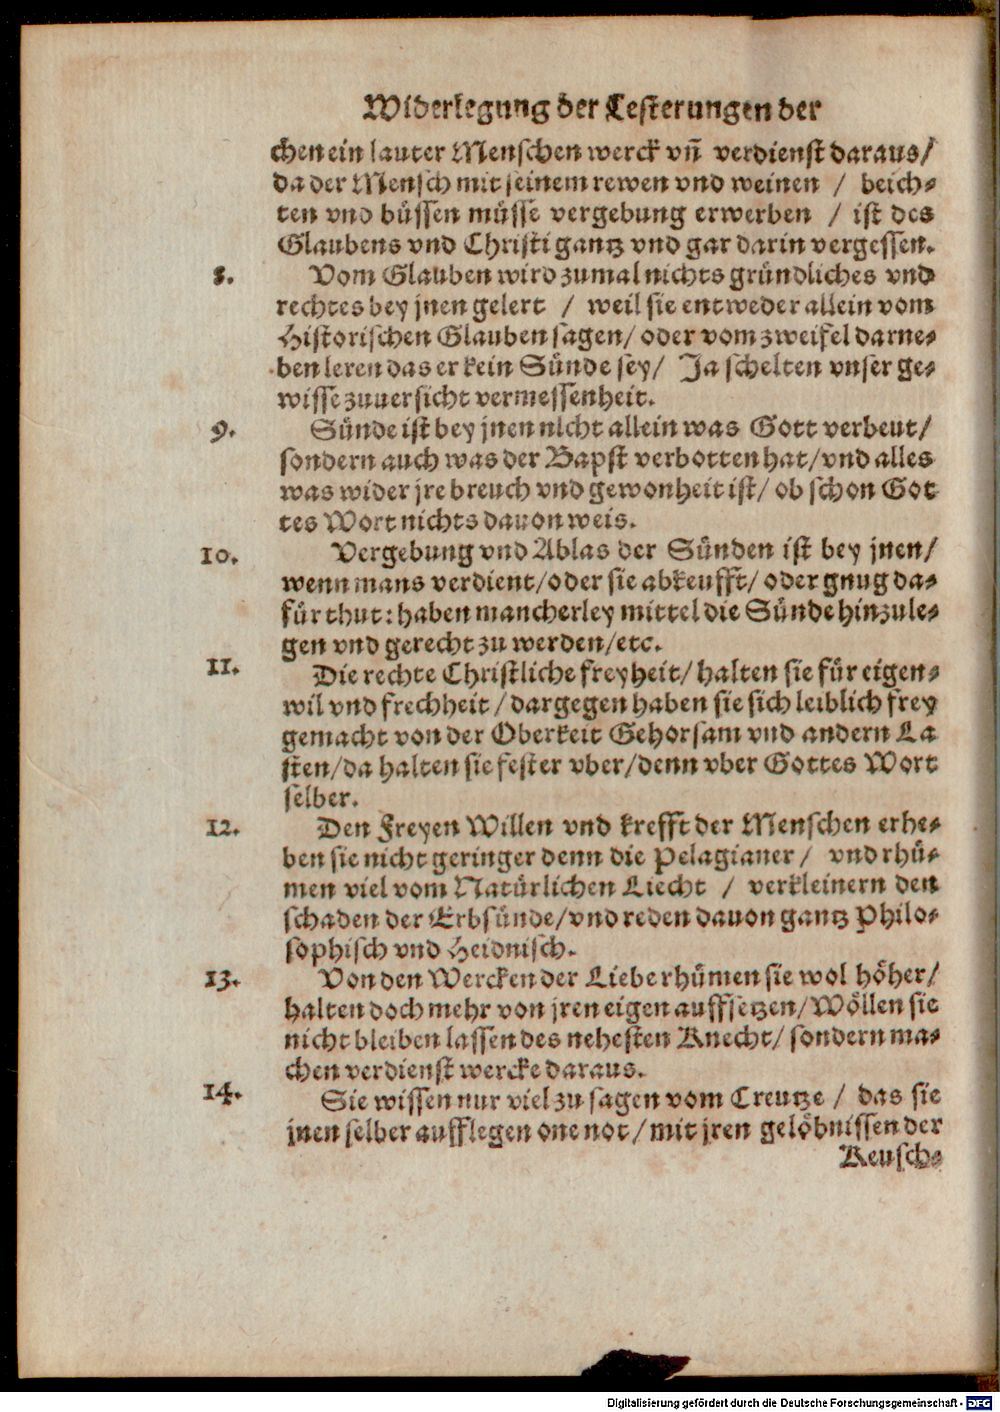 Widerlegung der Lesterungen der
chen ein lauter Menschen werck vnd̄ verdienst daraus/
da der Mensch mit seinem rewen vnd weinen / beich-
ten vnd büssen müsse vergebung erwerben / ist des
Glaubens vnd Christi gantz vnd gar darin vergessen.
8. Vom Glauben wird zumal nichts gründliches vnd
rechtes bey jnen gelert / weil sie entweder allein vom
Historischen Glauben sagen/ oder vom zweifel darne-
ben leren das er kein Sünde sey/ Ja schelten vnser ge-
wisse zuuersicht vermessenheit.
9. Sünde ist bey jnen nicht allein was Gott verbeut/
sondern auch was der Bapst verbotten hat/ vnd alles
was wider jre breuch vnd gewonheit ist/ ob schon Got
tes Wort nichts dauon weis.
10. Vergebung vnd Ablas der Sünden ist bey jnen/
wenn mans verdient/ oder sie abkeufft/ oder gnug da-
für thut: haben mancherley mittel die Sünde hinzule-
gen vnd gerecht zu werden/ etc.
11. Die rechte Christliche freyheit/ halten sie für eigen-
wil vnd frechheit / dargegen haben sie sich leiblich frey
gemacht von der Oberkeit Gehorsam vnd andern La
sten/ da halten sie fester vber/ denn vber Gottes Wort
selber.
12. Den Freyen Willen vnd krefft der Menschen erhe-
ben sie nicht geringer denn die Pelagianer / vnd rhü-
men viel vom Natürlichen Liecht / verkleinern den
schaden der Erbsünde/ vnd reden dauon gantz Philo-
sophisch vnd Heidnisch.
13. Von den Wercken der Liebe rhümen sie wol höher/
halten doch mehr von jren eigen auffsetzen/ Wöllen sie
nicht bleiben lassen des nehesten Knecht/ sondern ma-
chen verdienst wercke daraus.
14. Sie wissen nur viel zu sagen vom Creutze / das sie
jnen selber aufflegen one not / mit jren gelöbnissen der
Keusch-
Digitalisierung gefördert durch die Deutsche Forschungsgemeinschaft - DFG